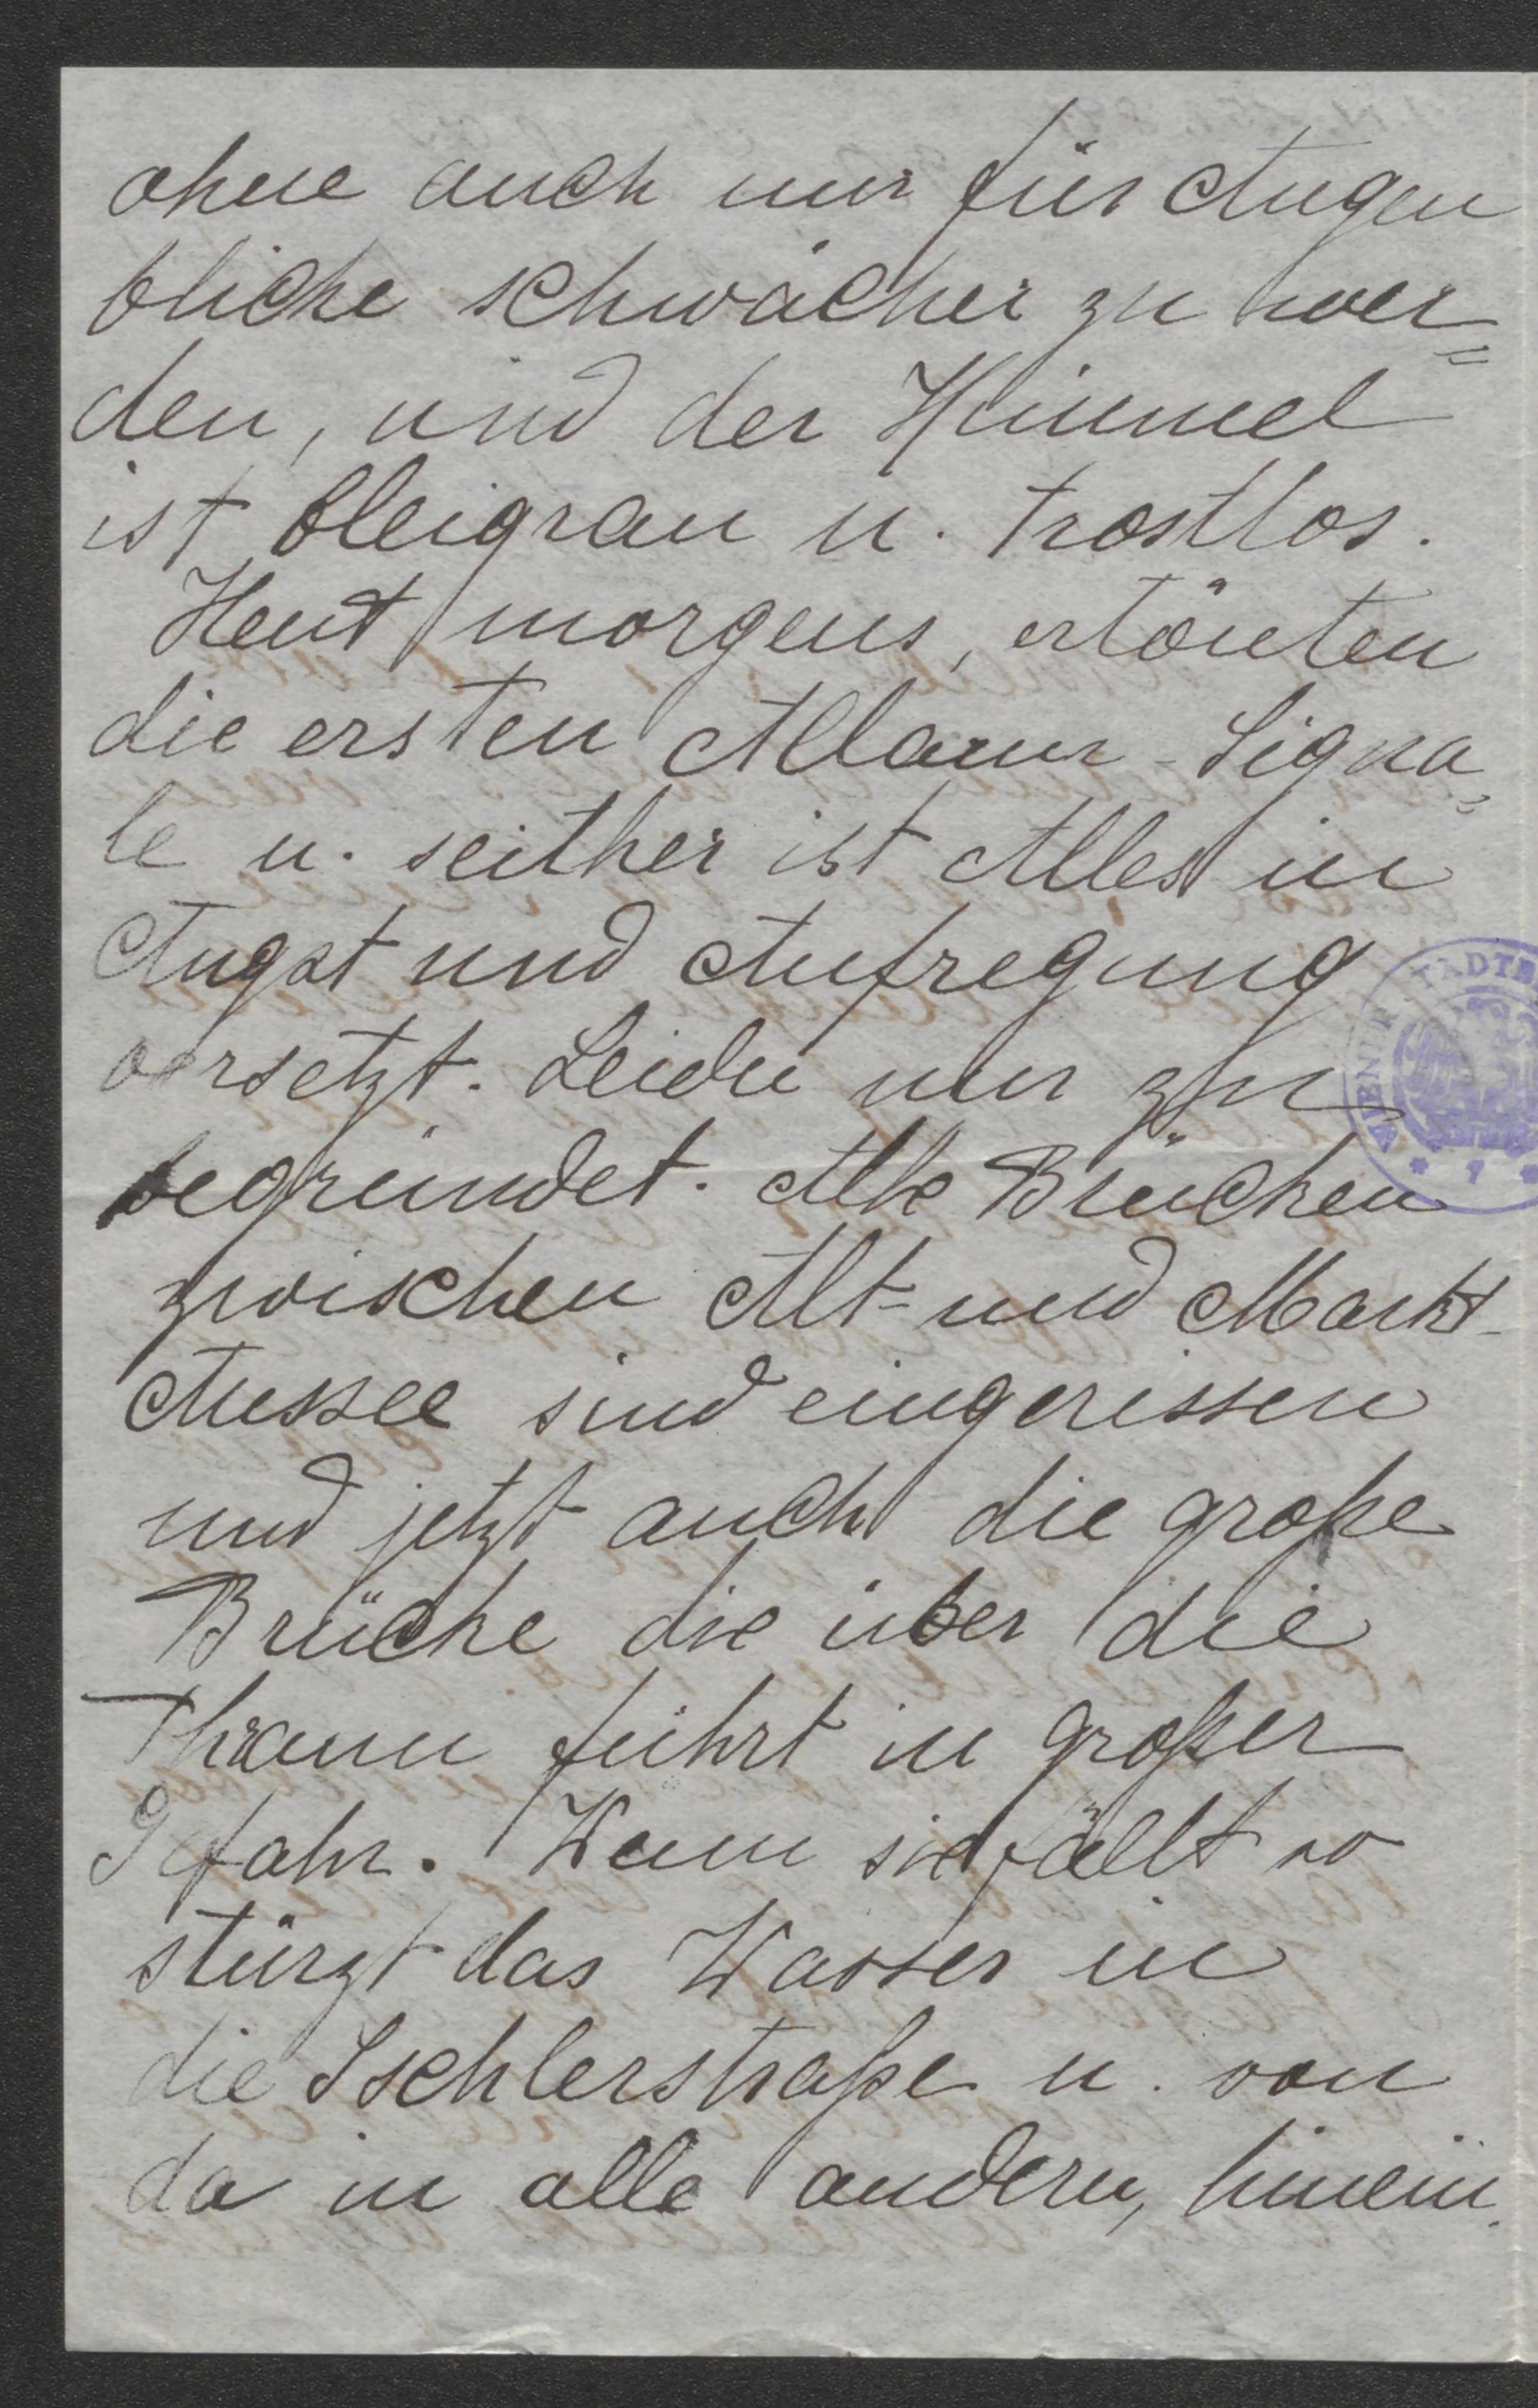 ohne auch nur für Augen
blicke schwächer zu wer=
den, und der Himmel
ist bleigrau u. trostlos.
Heut morgens, ertönten
die ersten Allarm-Signa=
le u. seither ist Alles in
Angst und Aufregung
versetzt. Leider nur zu
begründet. Alle Brücken
zwischen Alt- und Markt-
Aussee sind eingerissen
und jetzt auch die große
Brücke die über die
Thraun führt in großer
Gefahr. Wenn sie fällt so
stürzt das Wasser in
die Ischlerstraße u. von
da in alle andern, hinein.